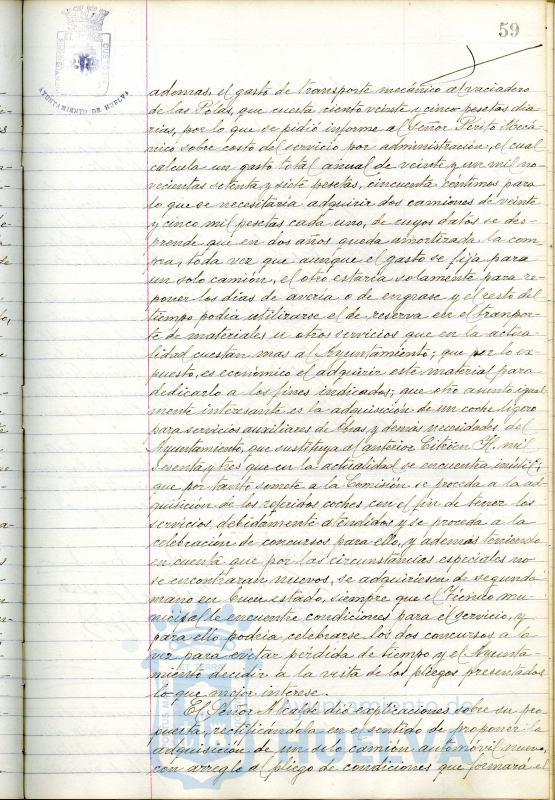 59
AYUNTAMIENTO DE HUELVA
ademas, el gasto de transporte mecánico al vaciadero
de las Polas, que cuesta ciento veinte y cinco pesetas dia-
rias, por lo que se pidió informe al Señor Perito Mecá-
nico sobre costo del servicio por administración, el cual
calcula un gasto total anual de veinte y un mil no-
vecientas setenta y siete pesetas, cincuenta céntimos para
lo que se necesitaria adquirir dos camiones de veinte
y cinco mil pesetas cada uno, de cuyos datos se des-
prende que en dos años queda amortizada la com-
pra, toda vez que aunque el gasto se fija para
un solo camión, el otro estaria solamente para re-
poner los dias de averia o de engrase y el resto del
tiempo podia utilizarse el de reserva en el tranpor-
te de materiales u otros servicios que en la actua-
lidad cuestan mas al Ayuntamiento; que por lo ex-
puesto, es económico el adquirir este material para
dedicarlo a los fines indicados; que otro asunto igual-
mente interesante es la adquisición de un coche ligero
para servicios auxiliares de Obras y demás necesidades del
Ayuntamiento, que sustituya al anterior Citröen H. mil
sesenta y tres que en la actualidad se encuentra inutil;
que por tanto, somete a la Comisión se proceda a la ad-
quisición de los referidos coches con el fin de tener los
servicios debidamente atendidos y se proceda a la
celebración de concursos para ello, y además teniendo
en cuenta que por las circunstancias especiales no
se encontraran nuevos, se adquiriesen de segunda
mano en buen estado, siempre que el Técnico mu-
nicipal le encuentre condiciones para el servicio, y
para ello podria celebrarse los dos concursos a la
vez para evitar pérdida de tiempo y el Ayunta-
miento decidir a la vista de los pliegos presentados
lo que mejor interese.
El Señor Alcalde dió explicaciones sobre su pro-
puesta, rectificándola en el sentido de proponer la
adquisición de un solo camión automóvil nuevo,
con arreglo al pliego de condiciones que formará el